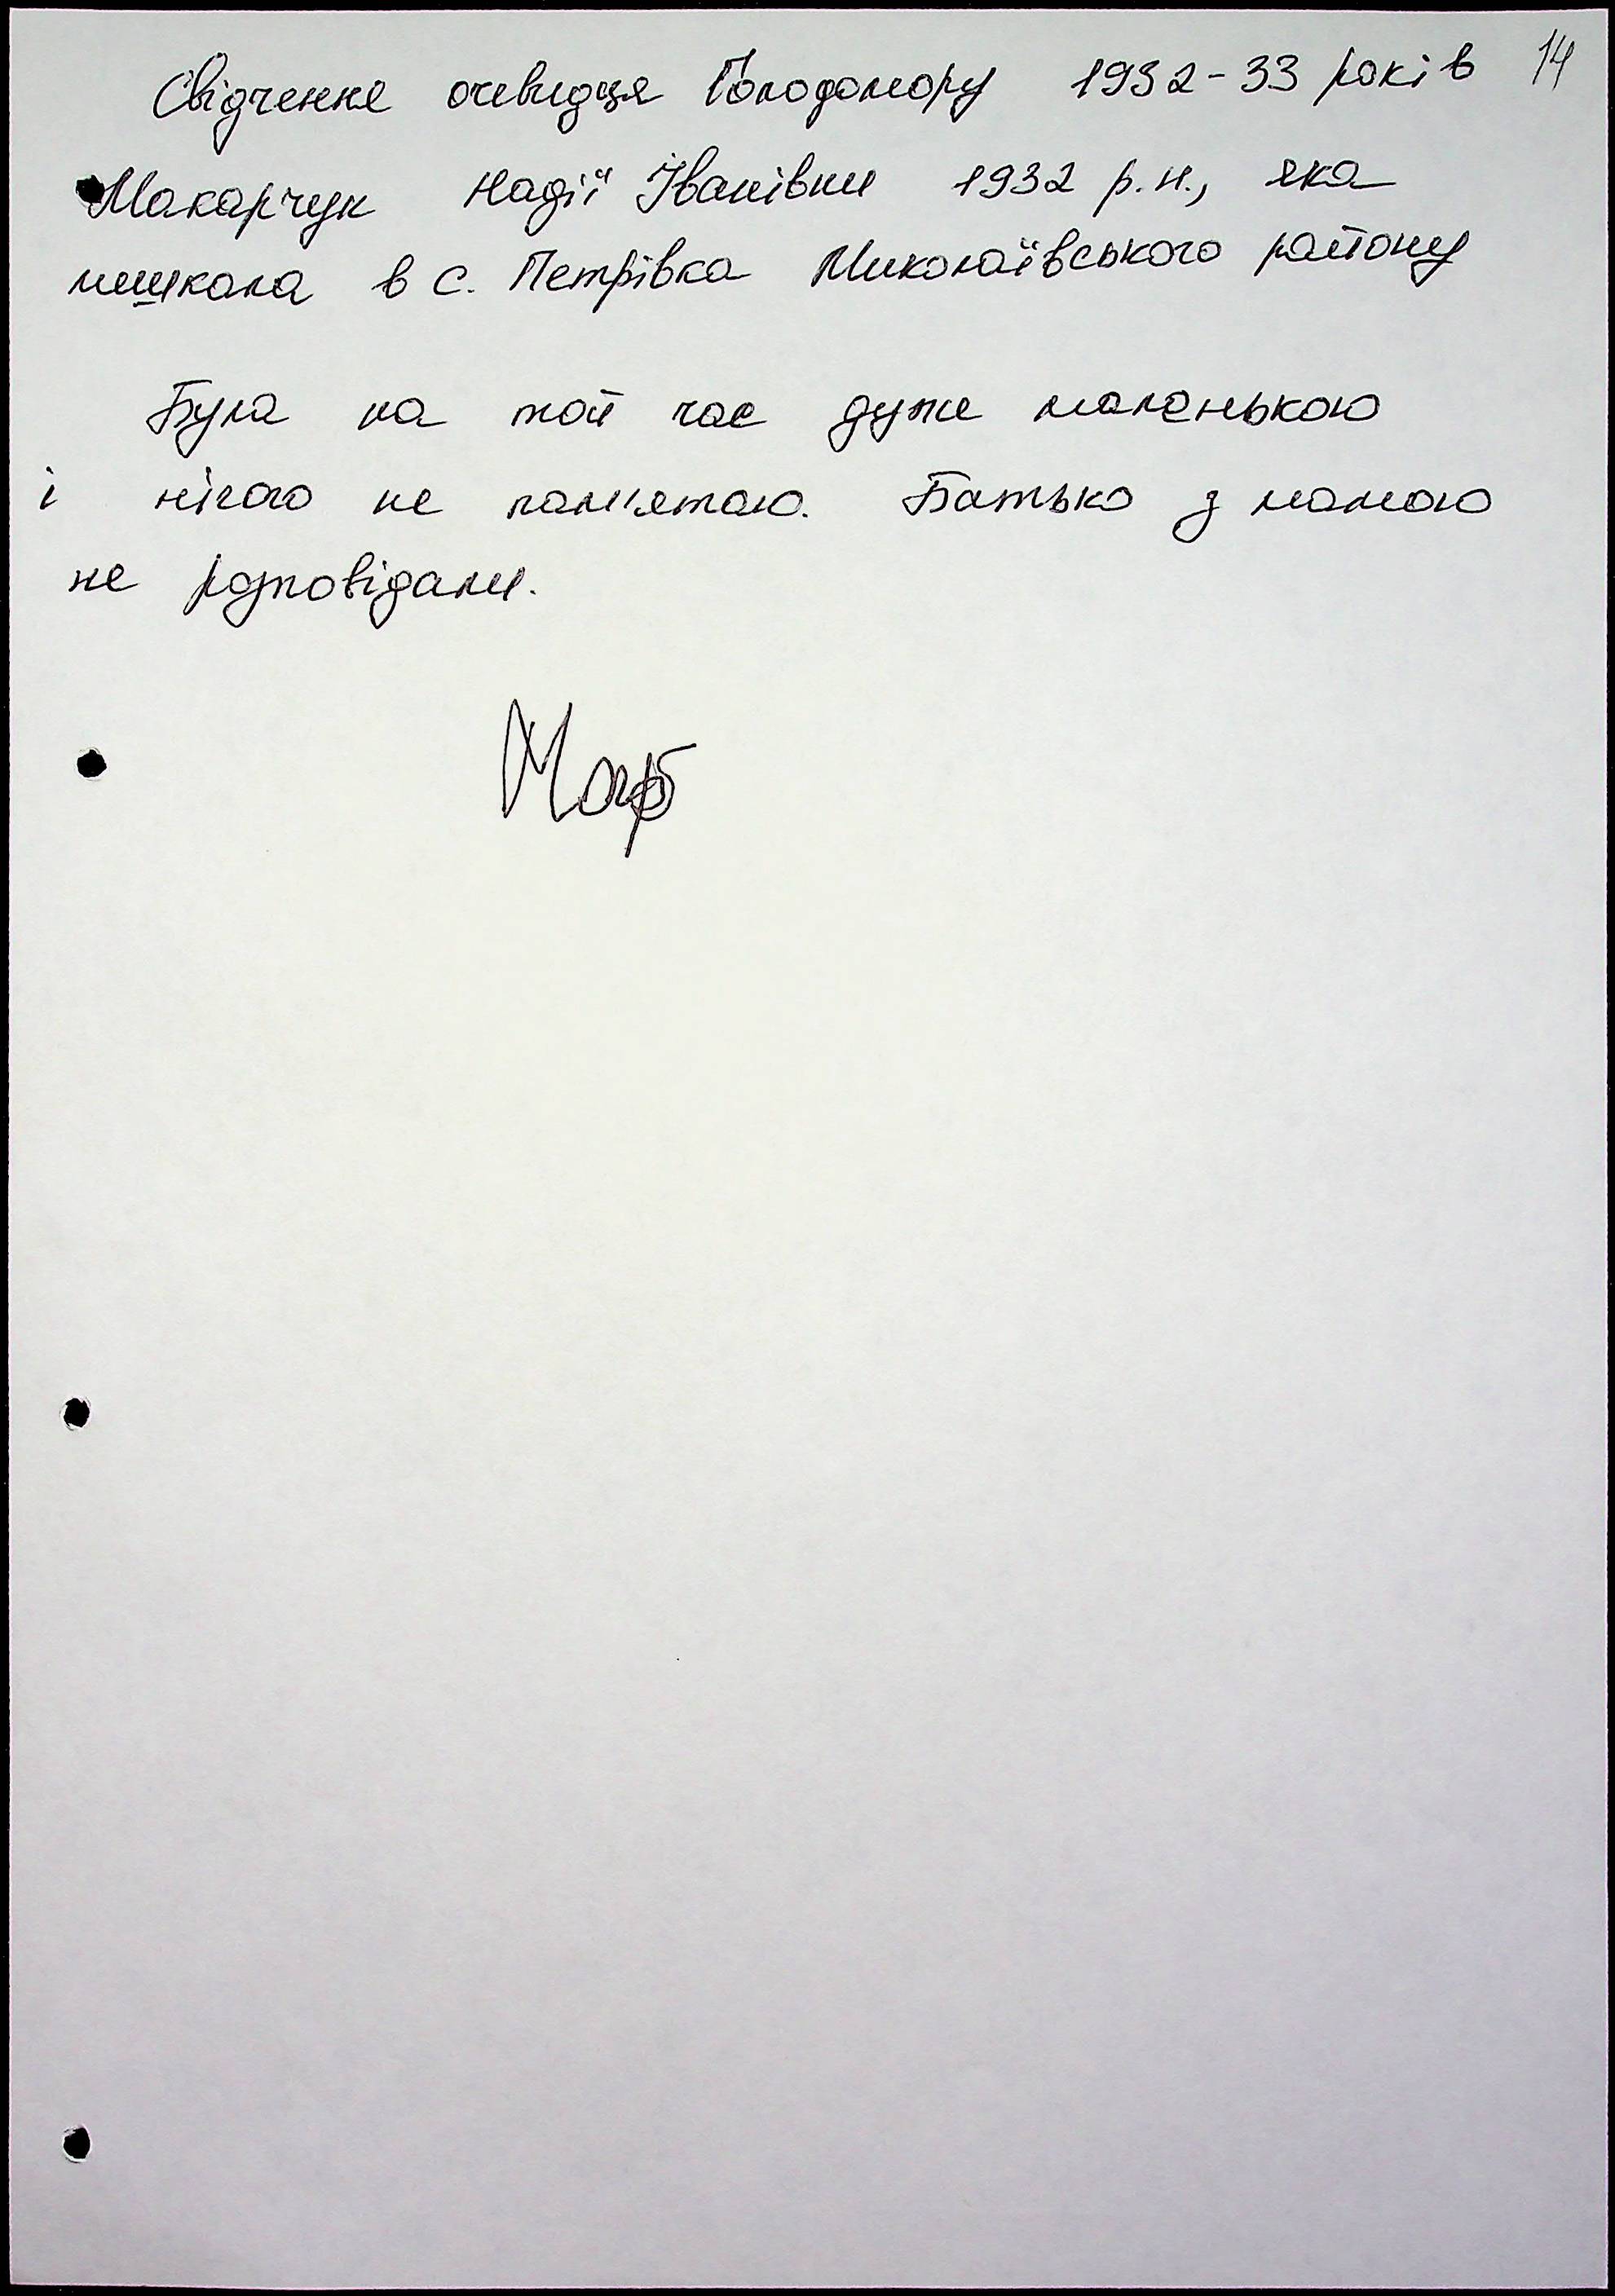 14
Свідчення очевидця Голодомору 1932-33 років
Макарчук Надії Іванівни 1932 р.н., яка
мешкала в с. Петрівка Миколаївського району
Була на той час дуже маленькою
і нічого не пам'ятаю. Батько з мамою
не розповідали.